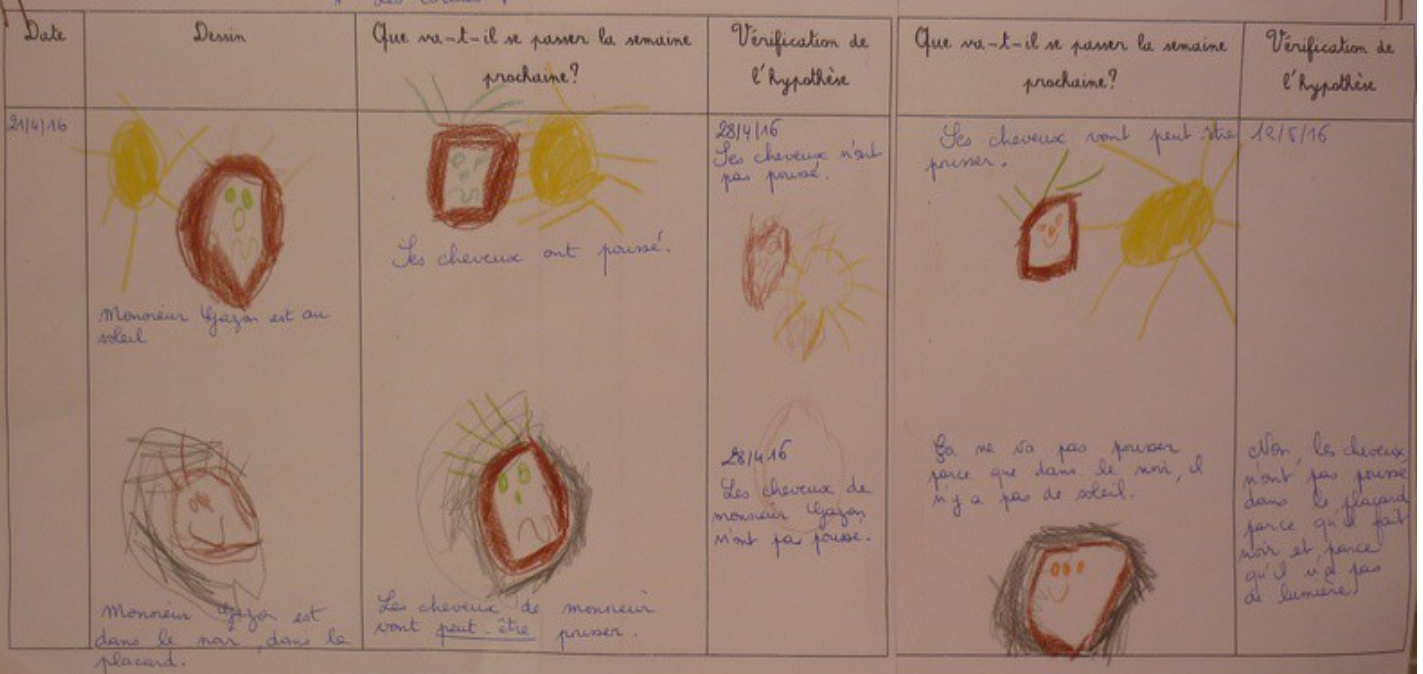 Date
Dessin
Que va-t-il se passer la semaine
prochaine?
Vérification de
l'hypothèse
Que va-t-il se passer la semaine
prochaine?
Vérification de
l'hypothèse
21/4/16
Monsieur Gazon est au
soleil
Ses cheveux ont poussé.
28/4/16
Ses cheveux n'ont
pas poussé.
Ses cheveux vont peut être
pousser.
12/5/16
Monsieur Gazon est
dans le noir, dans le
placard.
Les cheveux de monsieur
vont peut-être pousser.
28/4/16
Les cheveux de
monsieur Gazon
n'ont pas poussé.
Ça ne va pas pousser
parce que dans le noir, il
n'y a pas de soleil.
Non, les cheveux
n'ont pas poussé
dans le placard
parce qu'il fait
noir et parce
qu'il n'a pas
de lumière